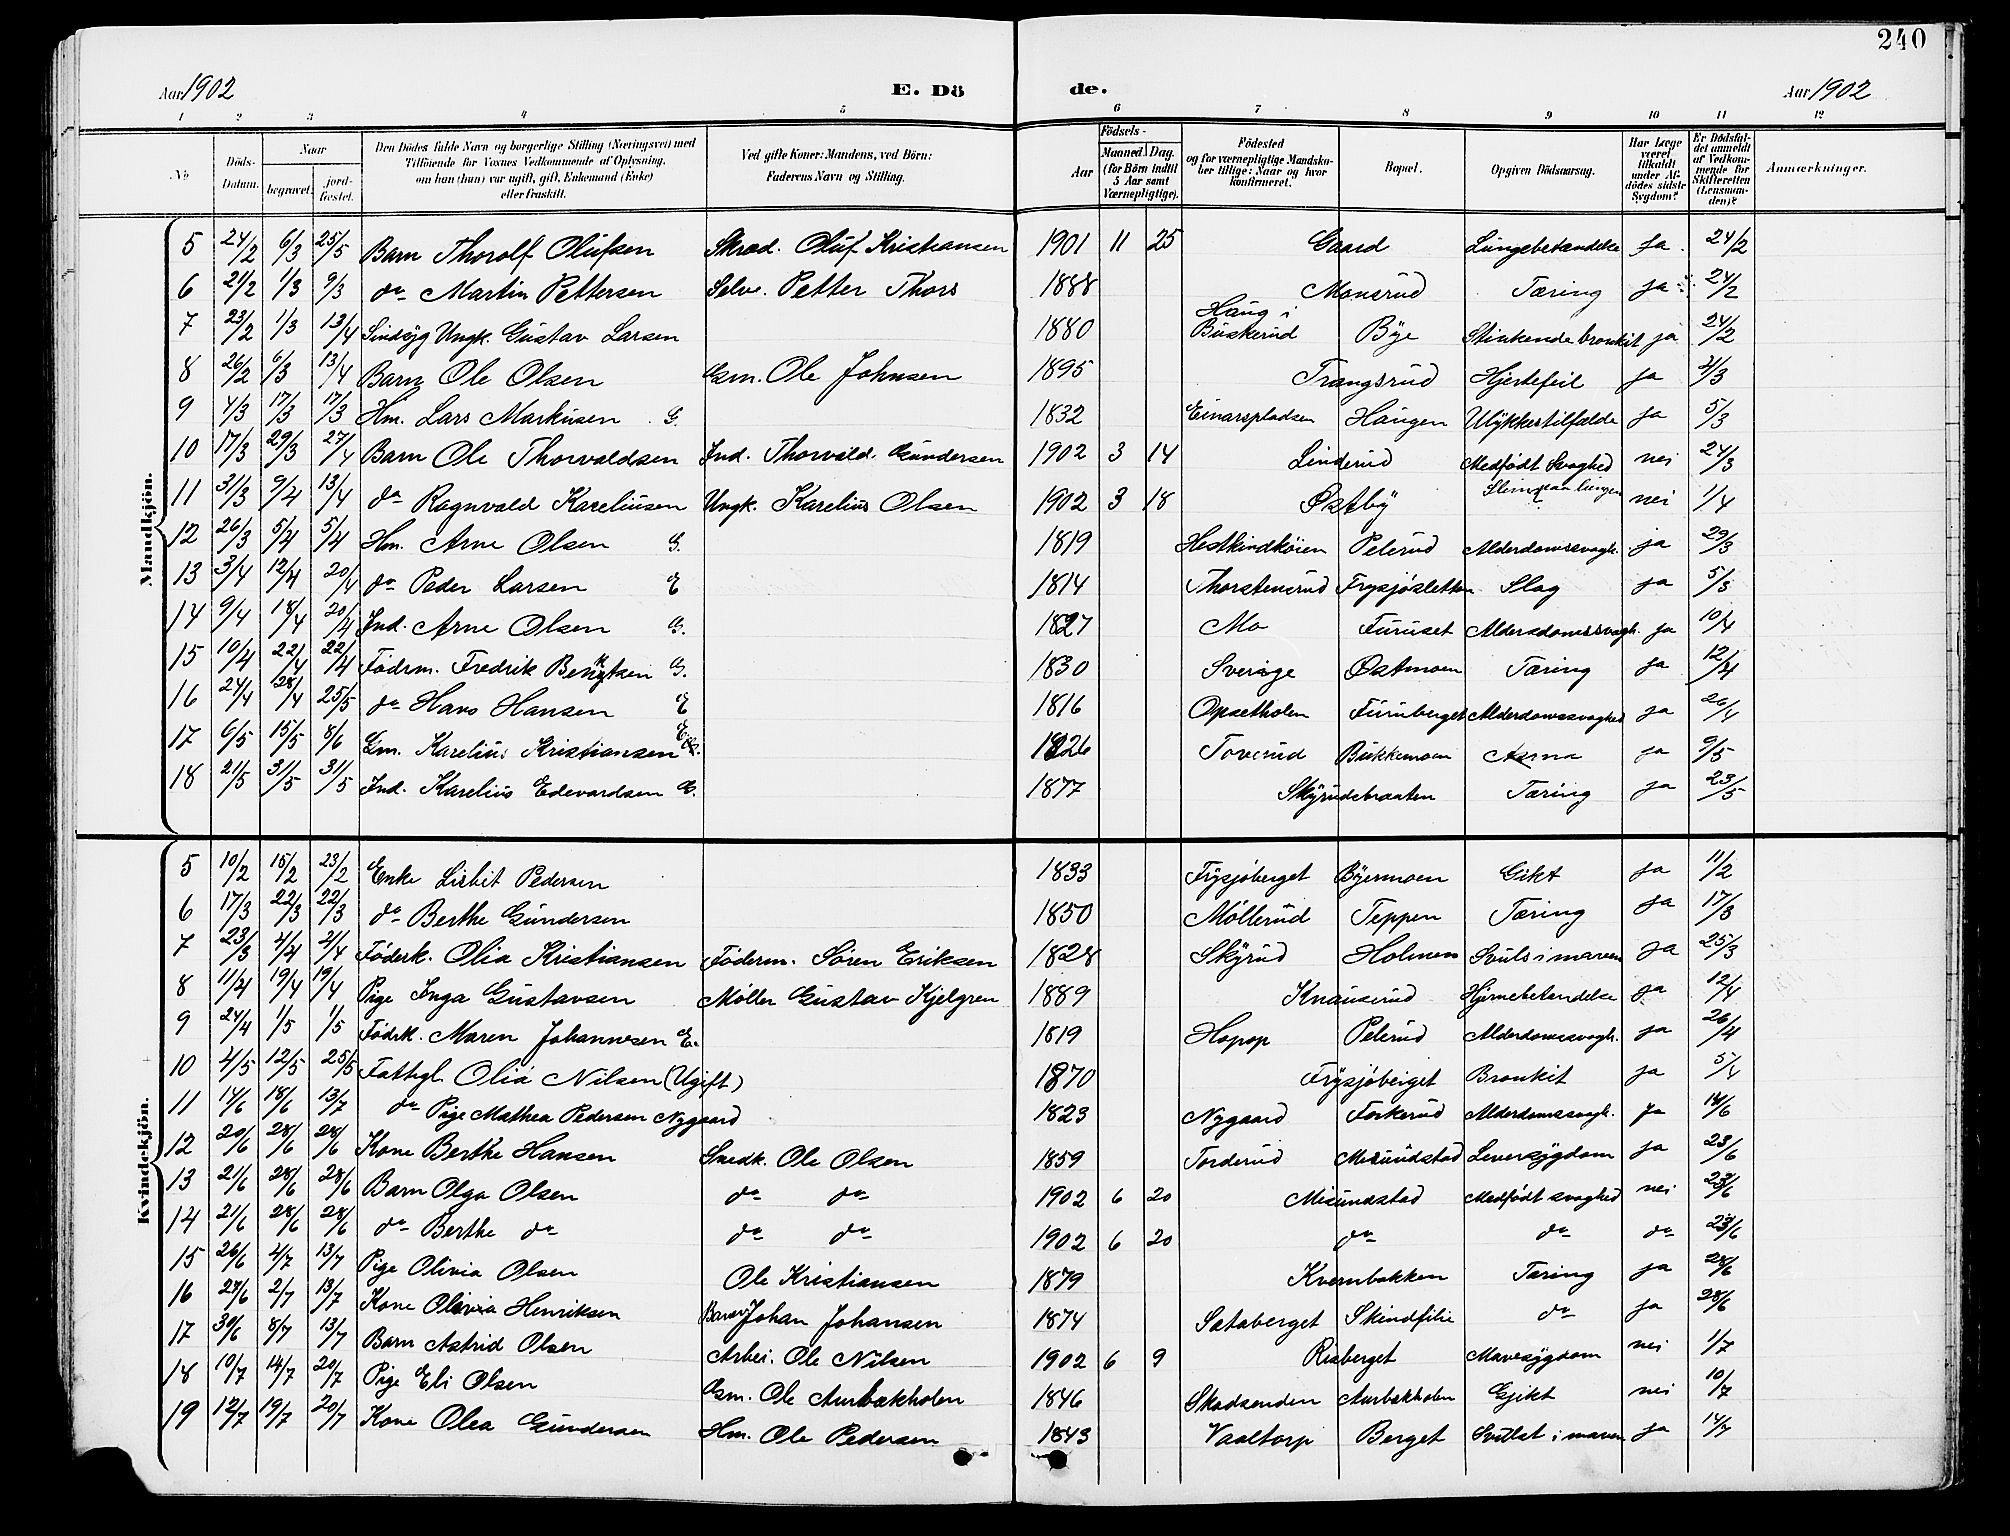 240
Aar 1902 E. Dö de. Aar 1902
1 2 3 4 5 6 7 8 9 10 11 12
No Döds-Datum. Naar begravet. jord-fæstet. Den Dödes fulde Navn og borgerlige Stilling (Næringsvei) med Tilföiende for Voxnes Vedkommende af Oplysning, om han (hun) var ugift, gift, Enkemand (Enke) eller fraskilt. Ved gifte Koner: Mandens, ved Börn: Faderens Navn og Stilling. Födsels- Aar Maaned. Dag. (for Börn indtil 5 Aar samt Værnepligtige). Födested og for værnepligtige Mandskaber tillige: Naar og hvor konfirmeret. Bopæl. Opgiven Dödsaarsag. Har Læge været tilkaldt under Afdödes sidste Sygdom? Er Dödsfaldet anmeldt af Vedkommende for Skifteretten (Lensmanden)? Anmærkninger.
Mandkjön.
5 24/2 6/3 25/5 Barn Thorolf Olufsen Skræd. Oluf Kristiansen 1901 11 25 Gaard Lungebetændelse Ja. 24/2
6 21/2 1/3 9/3 do Martin Pettersen Selve. Petter Thors 1888 Monsrud Tæring ja 24/2
7 23/2 1/3 13/4 Sindsyg Ungk. Gustav Larsen 1880 Haug i Buskerud Bye Stinkende bronkit ja 24/2
8 26/2 6/3 13/4 Barn Ole Olsen Gm. Ole Johnsen 1895 Trangsrud Hjertefeil ja 2/3
9 4/3 17/3 17/3 Hm. Lars Markusen G. 1832 Einarspladsen Haugen Ulykkestilfælde ja 5/3
10 17/3 29/3 27/4 Barn Ole Thorvaldsen Ind. Thorvald Gundersen 1902 3 14 Linderud Medfödt Svaghed nei 24/3
11 31/3 9/4 13/4 do Ragnvald Kareliusen Ungk. Karelius Olsen 1902 3 18 Østby Slim paa lungen nei 1/4
12 26/3 5/4 5/4 Hm. Arne Olsen G. 1819 Hestkindköien Pelerud Alderdomssvagh. ja 29/3
13 3/4 12/4 20/4 do Peder Larsen E 1814 Thorstensrud Frysjösletten Slag ja 5/3
14 9/4 18/4 20/4 Ind. Arne Olsen G. 1827 Mo Furuset Aldersdomssvagh. ja 10/4
15 10/4 22/4 22/4 Födrm. Fredrik Bengtsen G. 1830 Sverige Østmoen Tæring ja 12/4
16 24/4 28/4 25/5 do Hans Hansen E 1816 Opsetholen Furuberget Alderdomssvaghed ja 26/4
17 6/5 15/5 8/6 Gm. Karelius Kristiansen E 1826 Toverud Bukkemoen Asma ja 9/5
18 21/5 31/5 31/5 Ind. Karelius Edevardsen G. 1877 Skyrudsbraaten Tæring ja 23/5
Kvindekjön.
5 10/2 15/2 23/2 Enke Lisbit Pedersen 1833 Frysjöberget Byermoen Gikt ja 11/2
6 17/3 22/3 22/3 do Berthe Gundersen 1850 Möllerud Teppen Tæring ja 17/3
7 23/3 4/4 4/4 Föderk. Olia Kristiansen Föderm. Sören Eriksen 1828 Skyrud Holmen Svuls i maven ja 25/3
8 11/4 19/4 19/4 Pige Inga Gustavsen Møller Gustav Kjelgren 1889 Knauserud Hjernebetendelse ja 12/4
9 24/4 1/5 1/5 Födrk. Maren Johannesen E. 1819 Hopop Pelerud Alderdomssvagh. ja 26/4
10 4/5 12/5 25/5 Fattigl. Olia Nilsen (Ugift) 1870 Frysjöberget Bronkit ja 5/4
11 14/6 18/6 13/7 do Pige Mathea Pedersen Nygaard 1823 Nygaard Forkerud Alderdomssvagh. ja 14/6
12 20/6 28/6 28/6 Kone Berthe Hansen Snedk. Ole Olsen 1859 Torderud Misundstad Leversygdom ja 23/6
13 21/6 28/6 28/6 Barn Olga Olsen do do 1902 6 20 Misundstad Medfödt svaghed nei 23/6
14 21/6 28/6 28/6 do Berthe do do do 1902 6 20 do do do 23/6
15 26/6 4/7 13/7 Pige Olivia Olsen Ole Kristiansen 1879 Kvernbakken Tæring ja 28/6
16 27/6 2/7 13/7 Kone Olivia Henriksen Johan Johansen 1874 Sataberget Skindfilie do ja 28/6
17 30/6 8/7 13/7 Barn Astrid Olsen Arbei. Ole Nilsen 1902 6 9 Risberget Mavesygdom nei 1/7
18 10/7 14/7 20/7 Pige Eli Olsen Gm. Ole Aurbakholen 1846 Skadsenden Aurbakholen Gjikt nei 10/7
19 12/7 19/7 20/7 Kone Olea Gundersen Hm. Ole Pedersen 1843 Vaaltorp Berget Svulst i maven ja 14/7